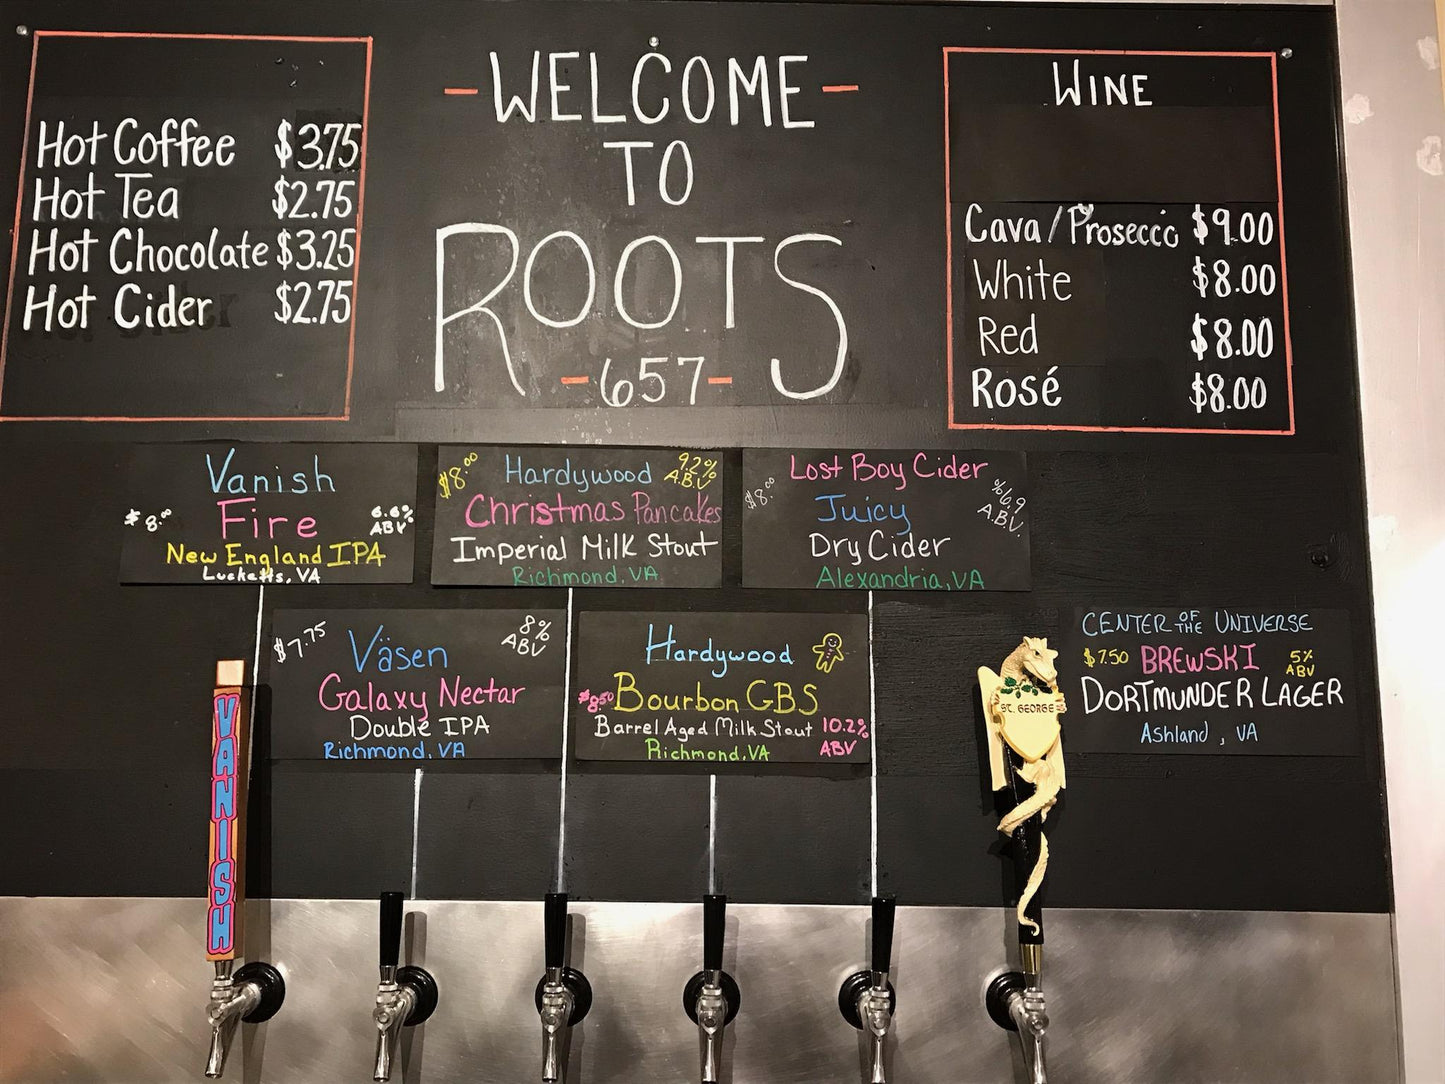 Hot Coffee $3.75
Hot Tea $2.75
Hot Chocolate $3.25
Hot Cider $2.75
-WELCOME-
TO
ROOTS
-657-
WINE
Cava/Prosecco $9.00
White $8.00
Red $8.00
Rosé $8.00
Vanish
Fire
$8.00
6.6%
ABV
New England IPA
Lucketts, VA
$8.00
Hardywood
9.2%
A.B.V
Christmas Pancakes
Imperial Milk Stout
Richmond, VA
Lost Boy Cider
$8.00
Juicy
%6.9
A.B.V.
Dry Cider
Alexandria, VA
$7.75
Väsen
8%
ABV
Galaxy Nectar
Double IPA
Richmond, VA
Hardywood
$8.50
Bourbon GBS
Barrel Aged Milk Stout
10.2%
ABV
Richmond, VA
CENTER OF THE UNIVERSE
$7.50 BREWSKI 5%
ABV
DORTMUNDER LAGER
Ashland, VA
VANISH
ST. GEORGE